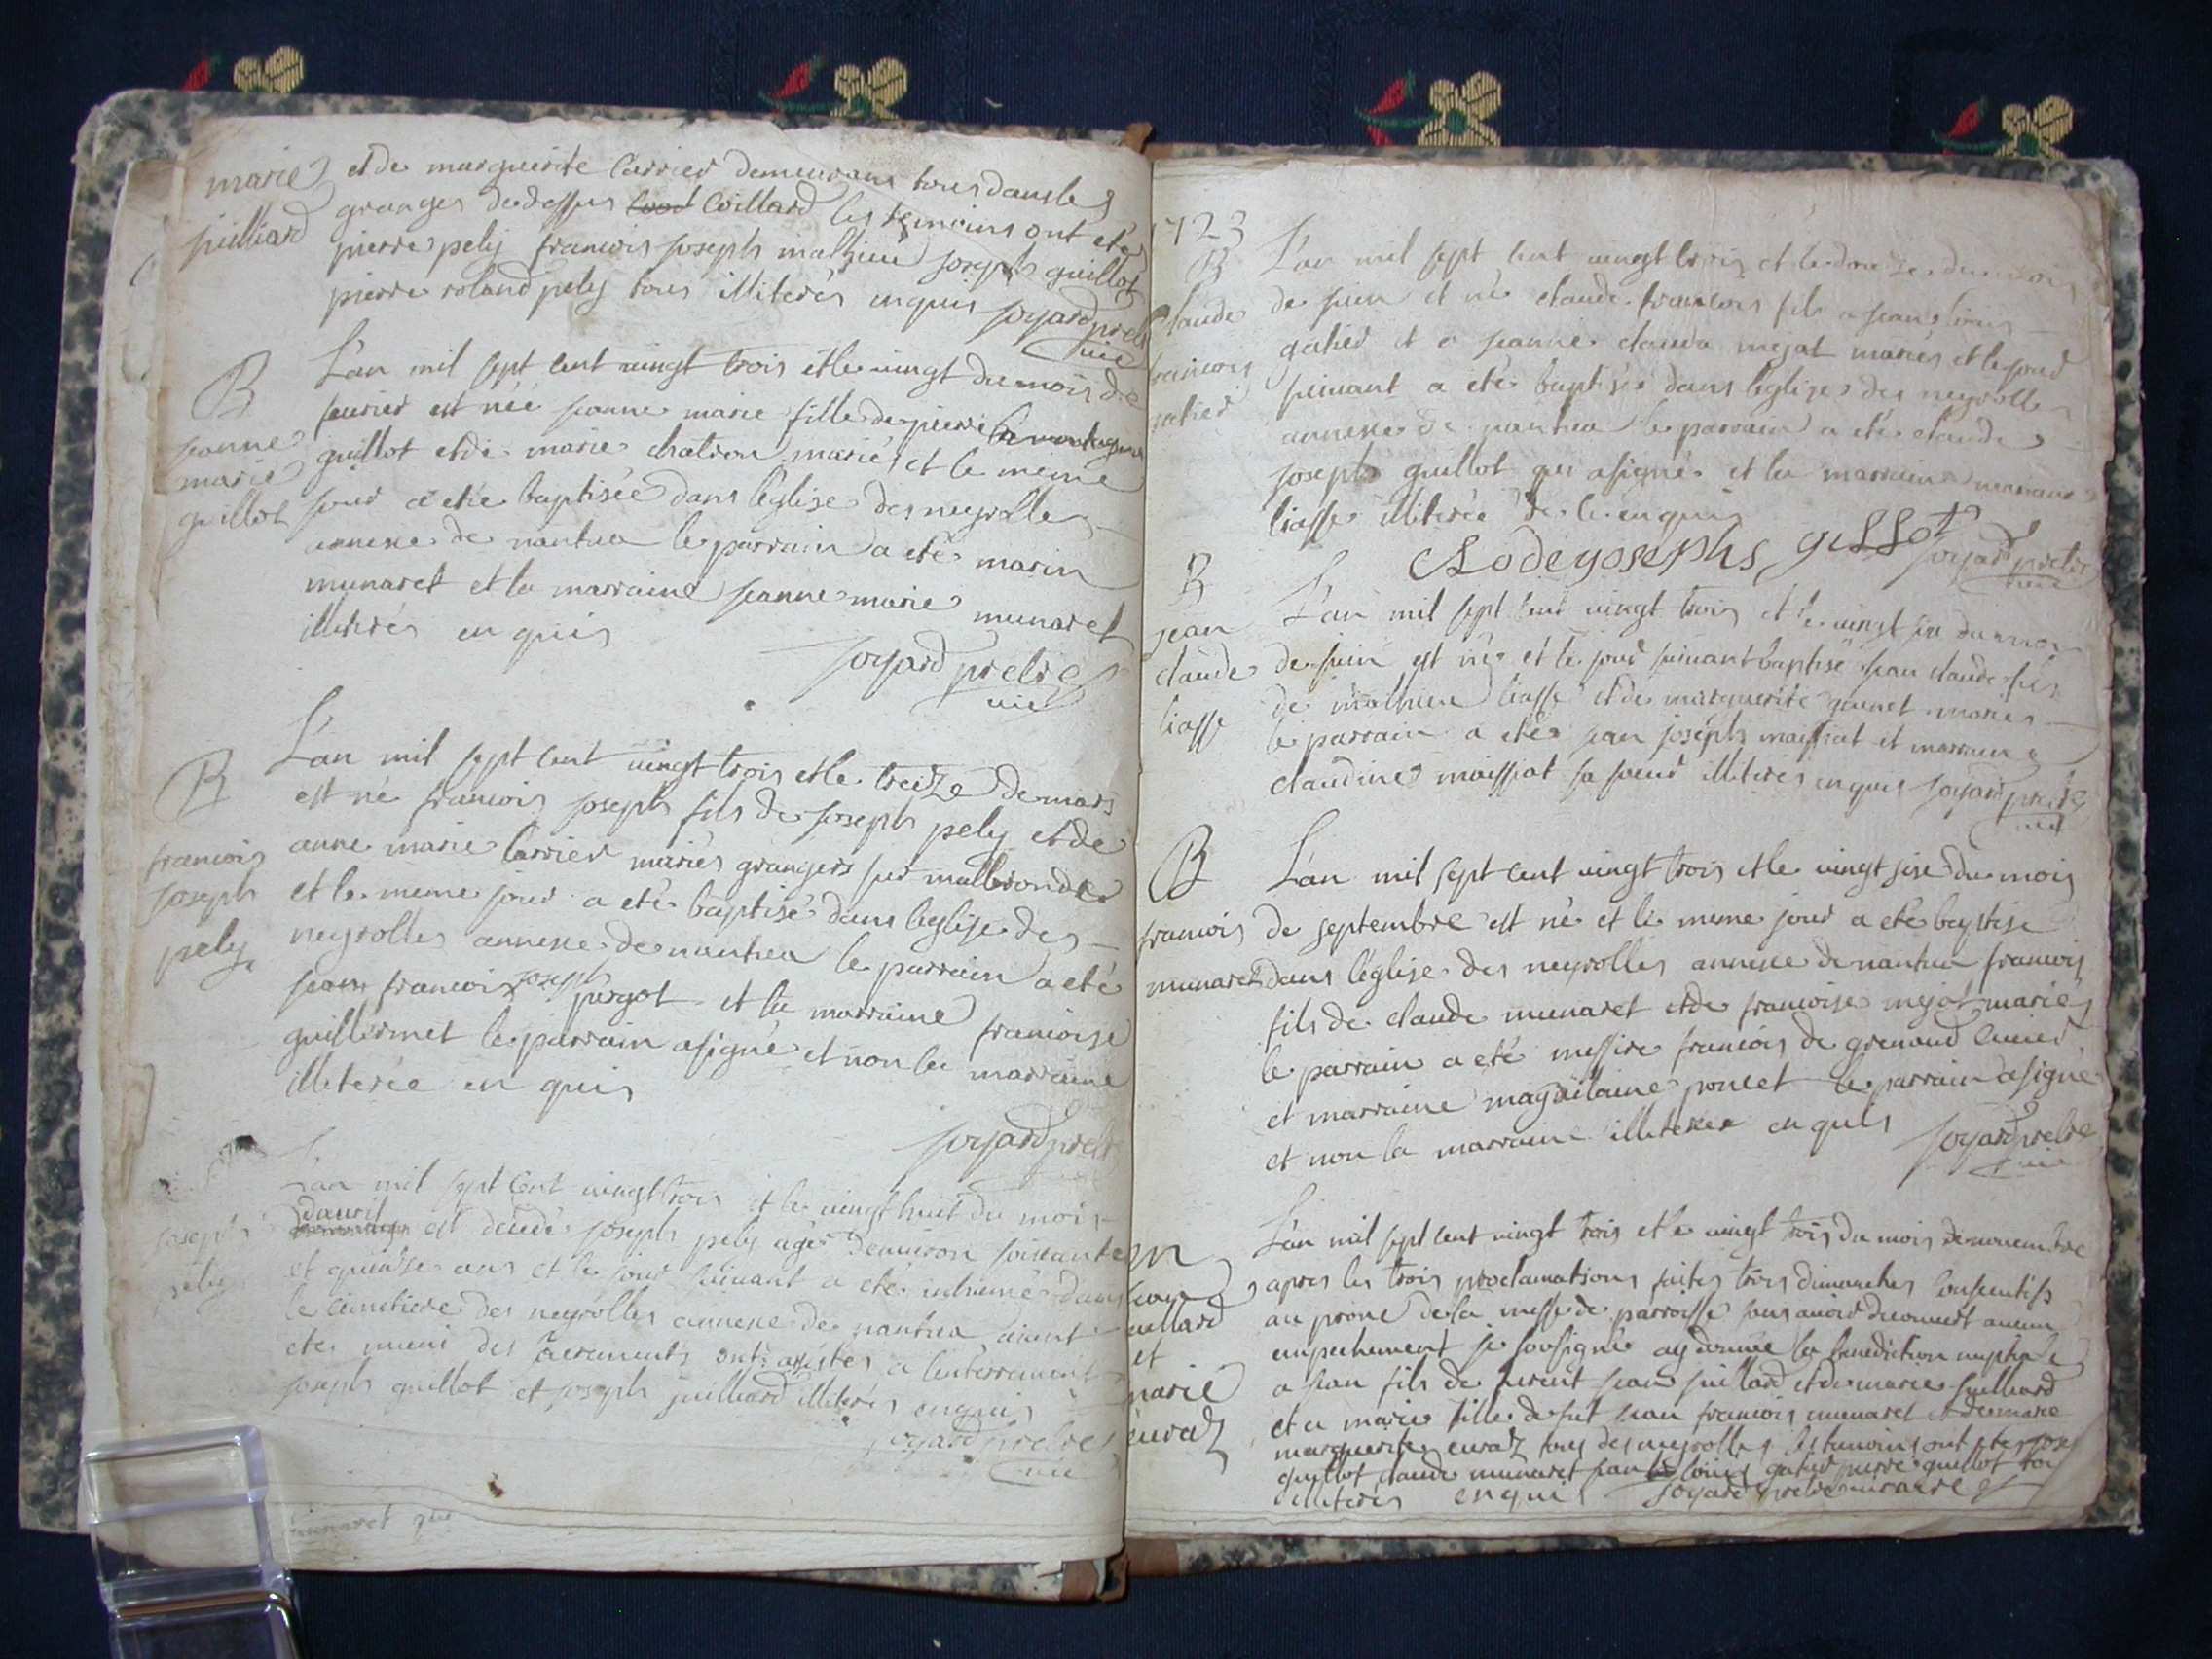 marie et de marguerite Carrier demeurans tous dans les
juilliard granges de dessus Coillard les temoins ont eté
pierre pely francois joseph mathieu joseph guillot
pierre roland pely tous illiterés enquis
joyard pretre
vic
B
L'an mil sept cent vingt trois et le vingt du mois de
feurier est née jeanne marie fille de pierre
jeanne
marie
guillot
guillot et de marie chatron mariés et le meme
jour a eté baptisée dans l'église des neyrolles
annexe de nantua le parrain a eté marin
munaret et la marraine jeanne marie munaret
illiterés enquis
joyard pretre
vic
B
L'an mil sept cent vingt trois et le treize de mars
est né francois joseph fils de joseph pely et de
francois
joseph
pely
anne marie Carrier mariés grangers sur mallebronde
et le meme jour a eté baptisé dans l'eglise des
neyrolles annexe de nantua le parrain a eté
jean francois joseph jurgot et la marraine francoise
guillermet le parrain a signé et non la marraine
illiterée enquis
joyard pretre
L'an mil sept cent vingt trois et le vingt huit du mois
dauril est decedé joseph pely agé denuiron soixante
joseph
pely
et quinze ans et le jour suiuant a eté inhumé dans
le cimetiere des neyrolles annexe de nantua aiant
eté muni des sacrements ont assistes a l'enterrement
joseph guillot et joseph juilliard illiterés enquis
joyard pretre
vic
munaret
1723
B
claude
francois
gahier
L'an mil sept cent vingt trois et le douze du mois
de juin et né claude francois fils a jean louis
gahier et a jeanne clauda mejat mariés et le jour
suiuant a eté baptisé dans l'eglise des neyrolles
annexe de nantua le parrain a eté claude
joseph guillot qui a signé et la marraine
liasse illiterée de ce enquis
Clode yosephs gillot
joyard pretre
vic
B
jean
claude
liasse
L'an mil sept cent vingt trois et le vingt six du mois
de juin est né et le jour suiuant baptisé jean claude fils
de mathieu liasse et de marguerite mariés
le parrain a eté jean joseph maissiat et marraine
claudine maissiat sa soeur illiterés enquis joyard pretre
vic
B
L'an mil sept cent vingt trois et le vingt sixe du mois
francois
munaret
de septembre est né et le meme jour a eté baptisé
dans l'église des neyrolles annexe de nantua francois
fils de claude munaret et de francoise mejat mariés
le parrain a eté messire francois de grenaud
et marraine poncet le parrain a signé
et non la marraine illiterée enquis
joyard pretre
vic
L'an mil sept cent vingt trois et le vingt trois du mois de nouembre
m
jean
juillard
et
marie
euraz
apres les trois proclamations faites trois dimanches consecutifs
au prone de la messe de parroisse sans auoir decouuert aucun
empechement je soussigné ay donnée la benediction nuptiale
a jean fils de jean juillard et de marie juilliard
et a marie fille de fut jean francois munaret et de marie
marguerite euraz tous des neyrolles les temoins ont eté
guillot claude munaret jean louis gahier pierre guillot
illiterés enquis joyard pretre vicaire